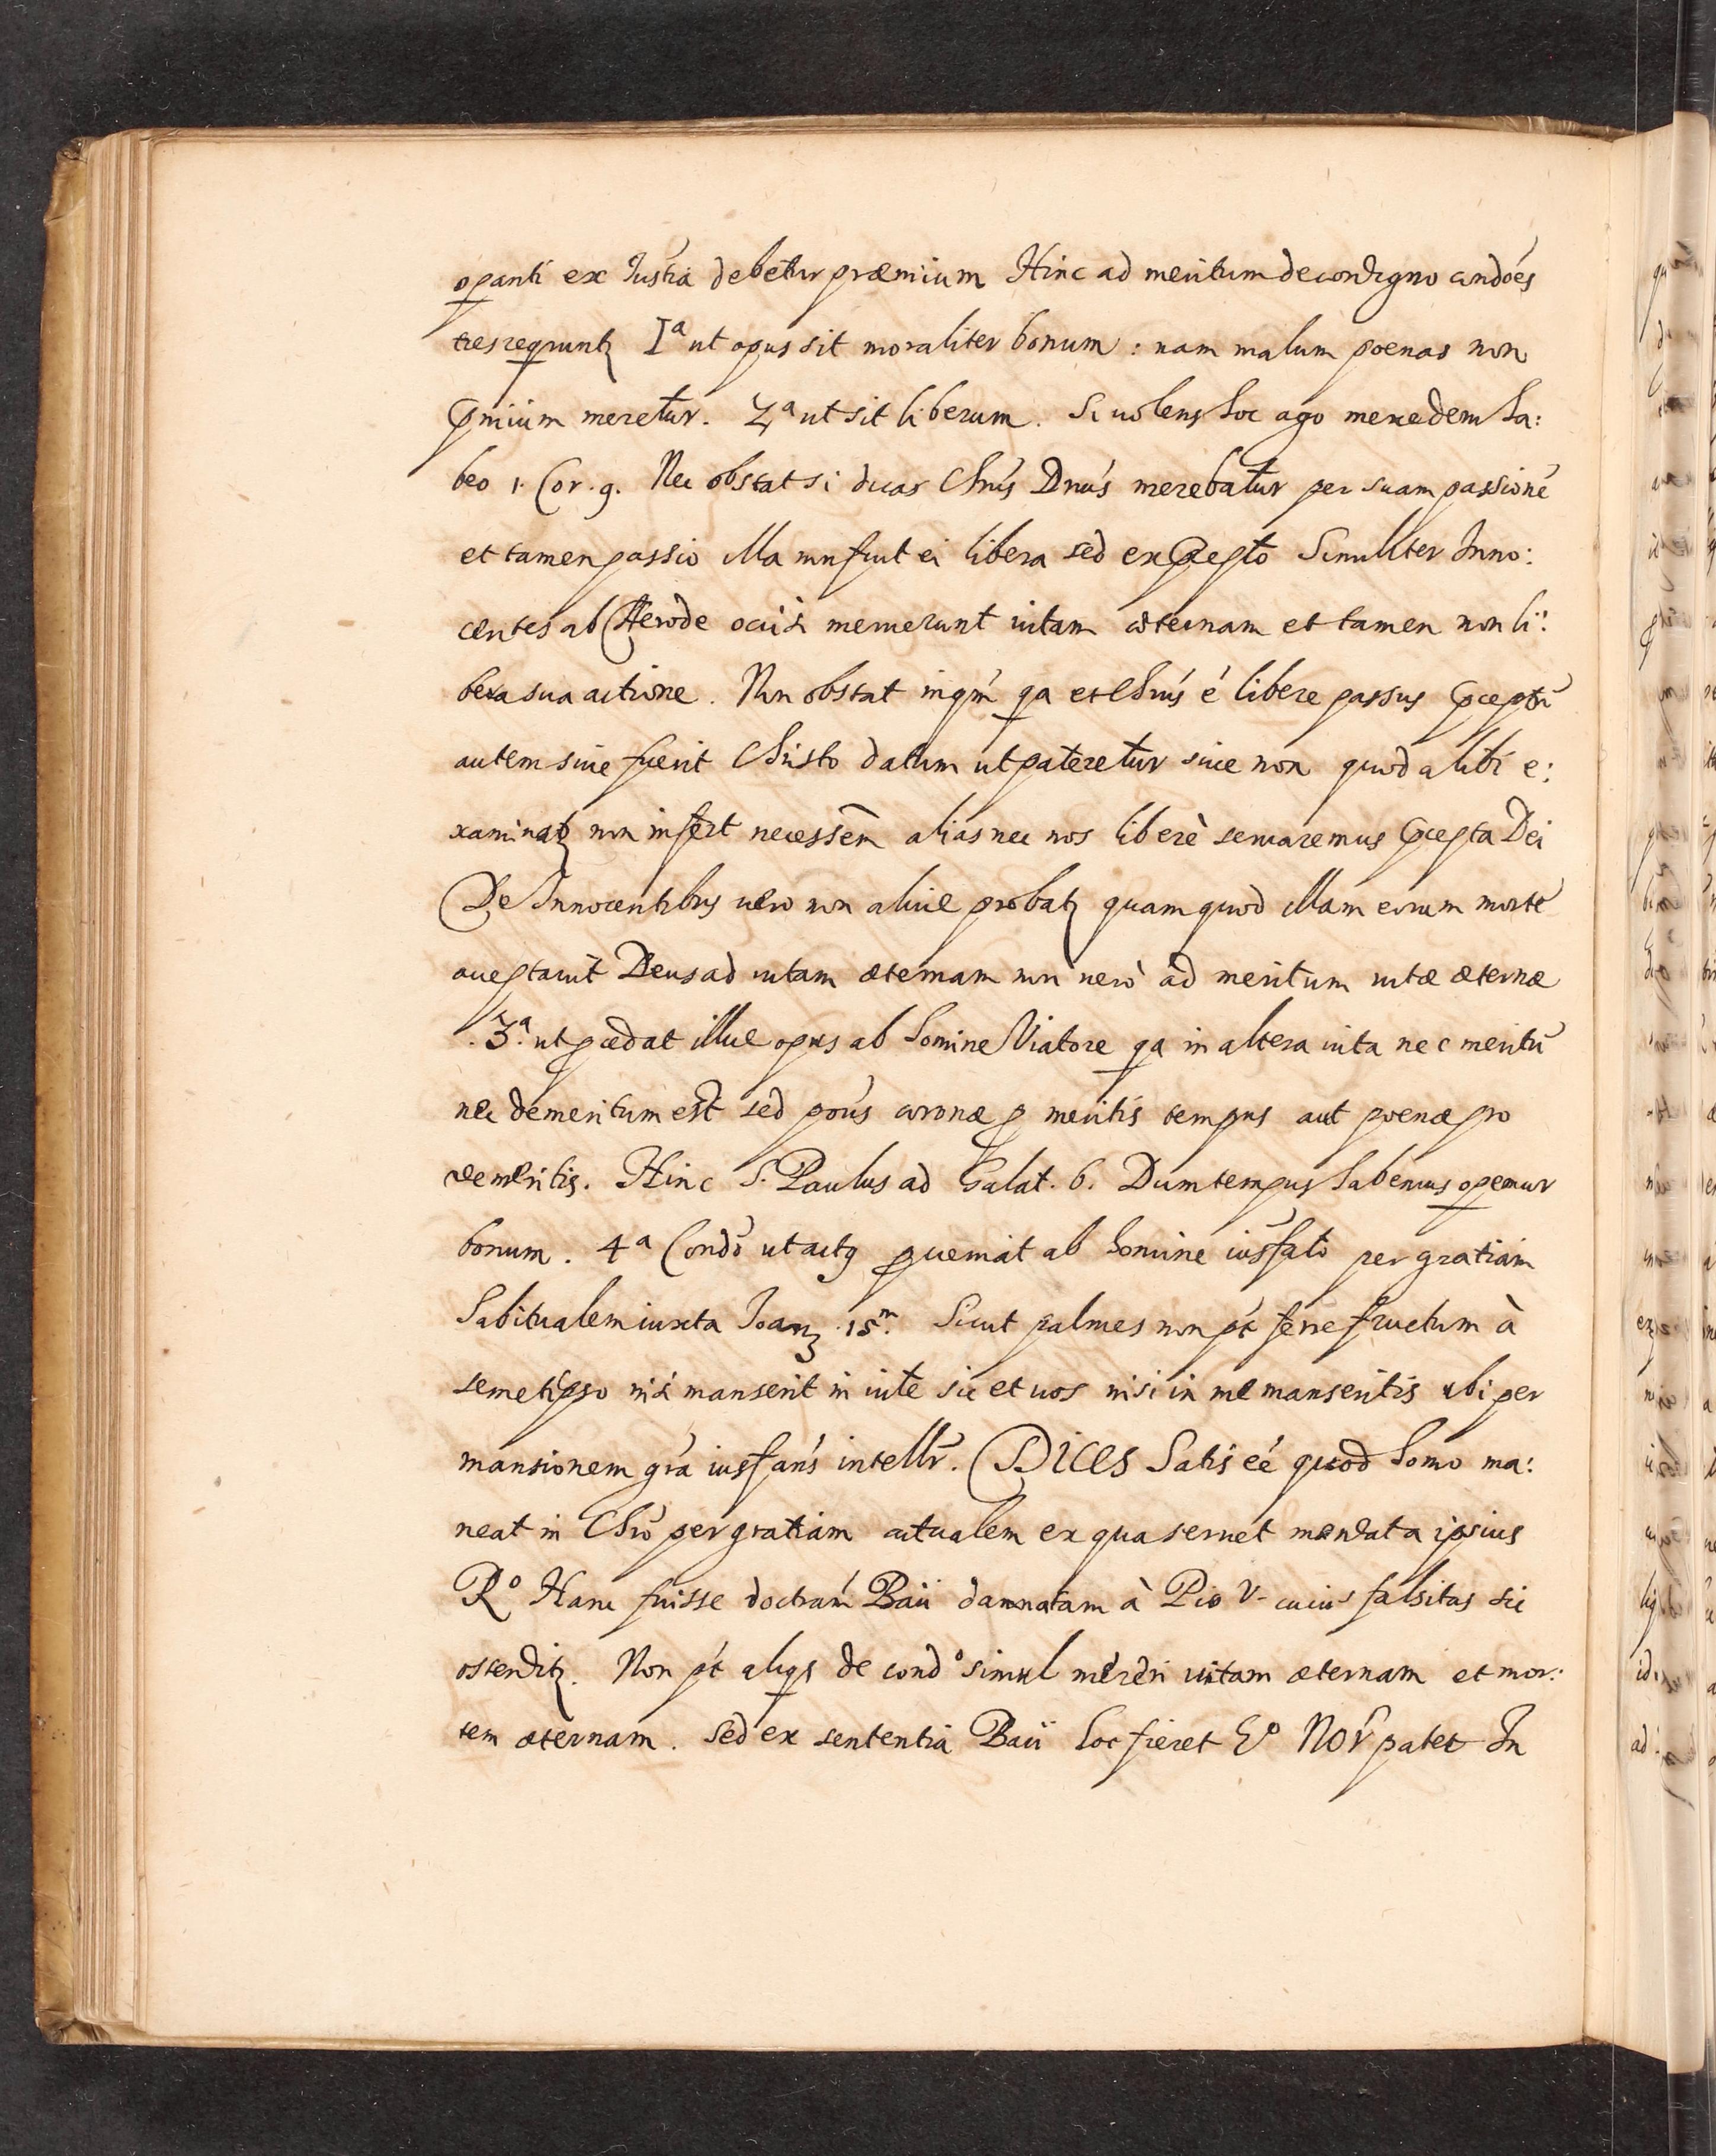 opanti ex Iustiâ debetur præmium Hinc ad meritum de condigno condões
tres reqrunt Iª ut opus sit moraliter bonum : nam malum poenas non
pmium meretur . 2ª ut sit liberum . Si volens hoc ago mercedem ha:
beo 1. Cor. 9. Nec obstat si dicas Chrûs Dnûs merebatur per suam passionē
et tamen passio illa non fuit ei libera sed ex pcepto Similiter Inno:
centes ab Herode occisi meruerunt vitam æternam et tamen non li:
bera sua actione . Non obstat inqm̃ qa et Chrûs ẽ libere passus pceptū
autem sive fuerit Christo datum ut pateretur sive non quod alibi e:
xaminat non infert necessẽm alias nec nos liberè servaremus pcepta Dei
De Innocentibus vero non aliud probat quam quod illam eorum mortē
acceptavit Deus ad vitam æternam non verò ad meritum vitæ æternæ
. 3ª. ut pcedat illud opus ab homine Viatore qa in altera vita nec meritū
nec demeritum est sed potiús coronæ p meritis tempus aut poenæ pro
demeritis . Hinc S. Paulus ad Galat. 6. Dum tempus habemus opemur
bonum . 4ª Condõ ut actus pveniat ab homine iusfato per gratiam
habitualem iuxta Ioan 15m. Sicut palmes non pt ferre fructum à
semetipso nisi manserit in vite sic et vos nisi in me manseritis ubi per
mansionem grã iusfans intellr̃ . DICES Satis eẽ quod homo ma:
neat in Chrõ per gratiam actualem ex qua servet mandata ipsius
Rº Hanc fuisse doctrãm Baii damnatam à Pio V. cuius falsitas sic
ostendit . Non pt aliqs de condº simul mereri vitam æternam et mor:
tem æternam . Sed ex sententia Baii hoc fieret Eº Mor̃ patet In